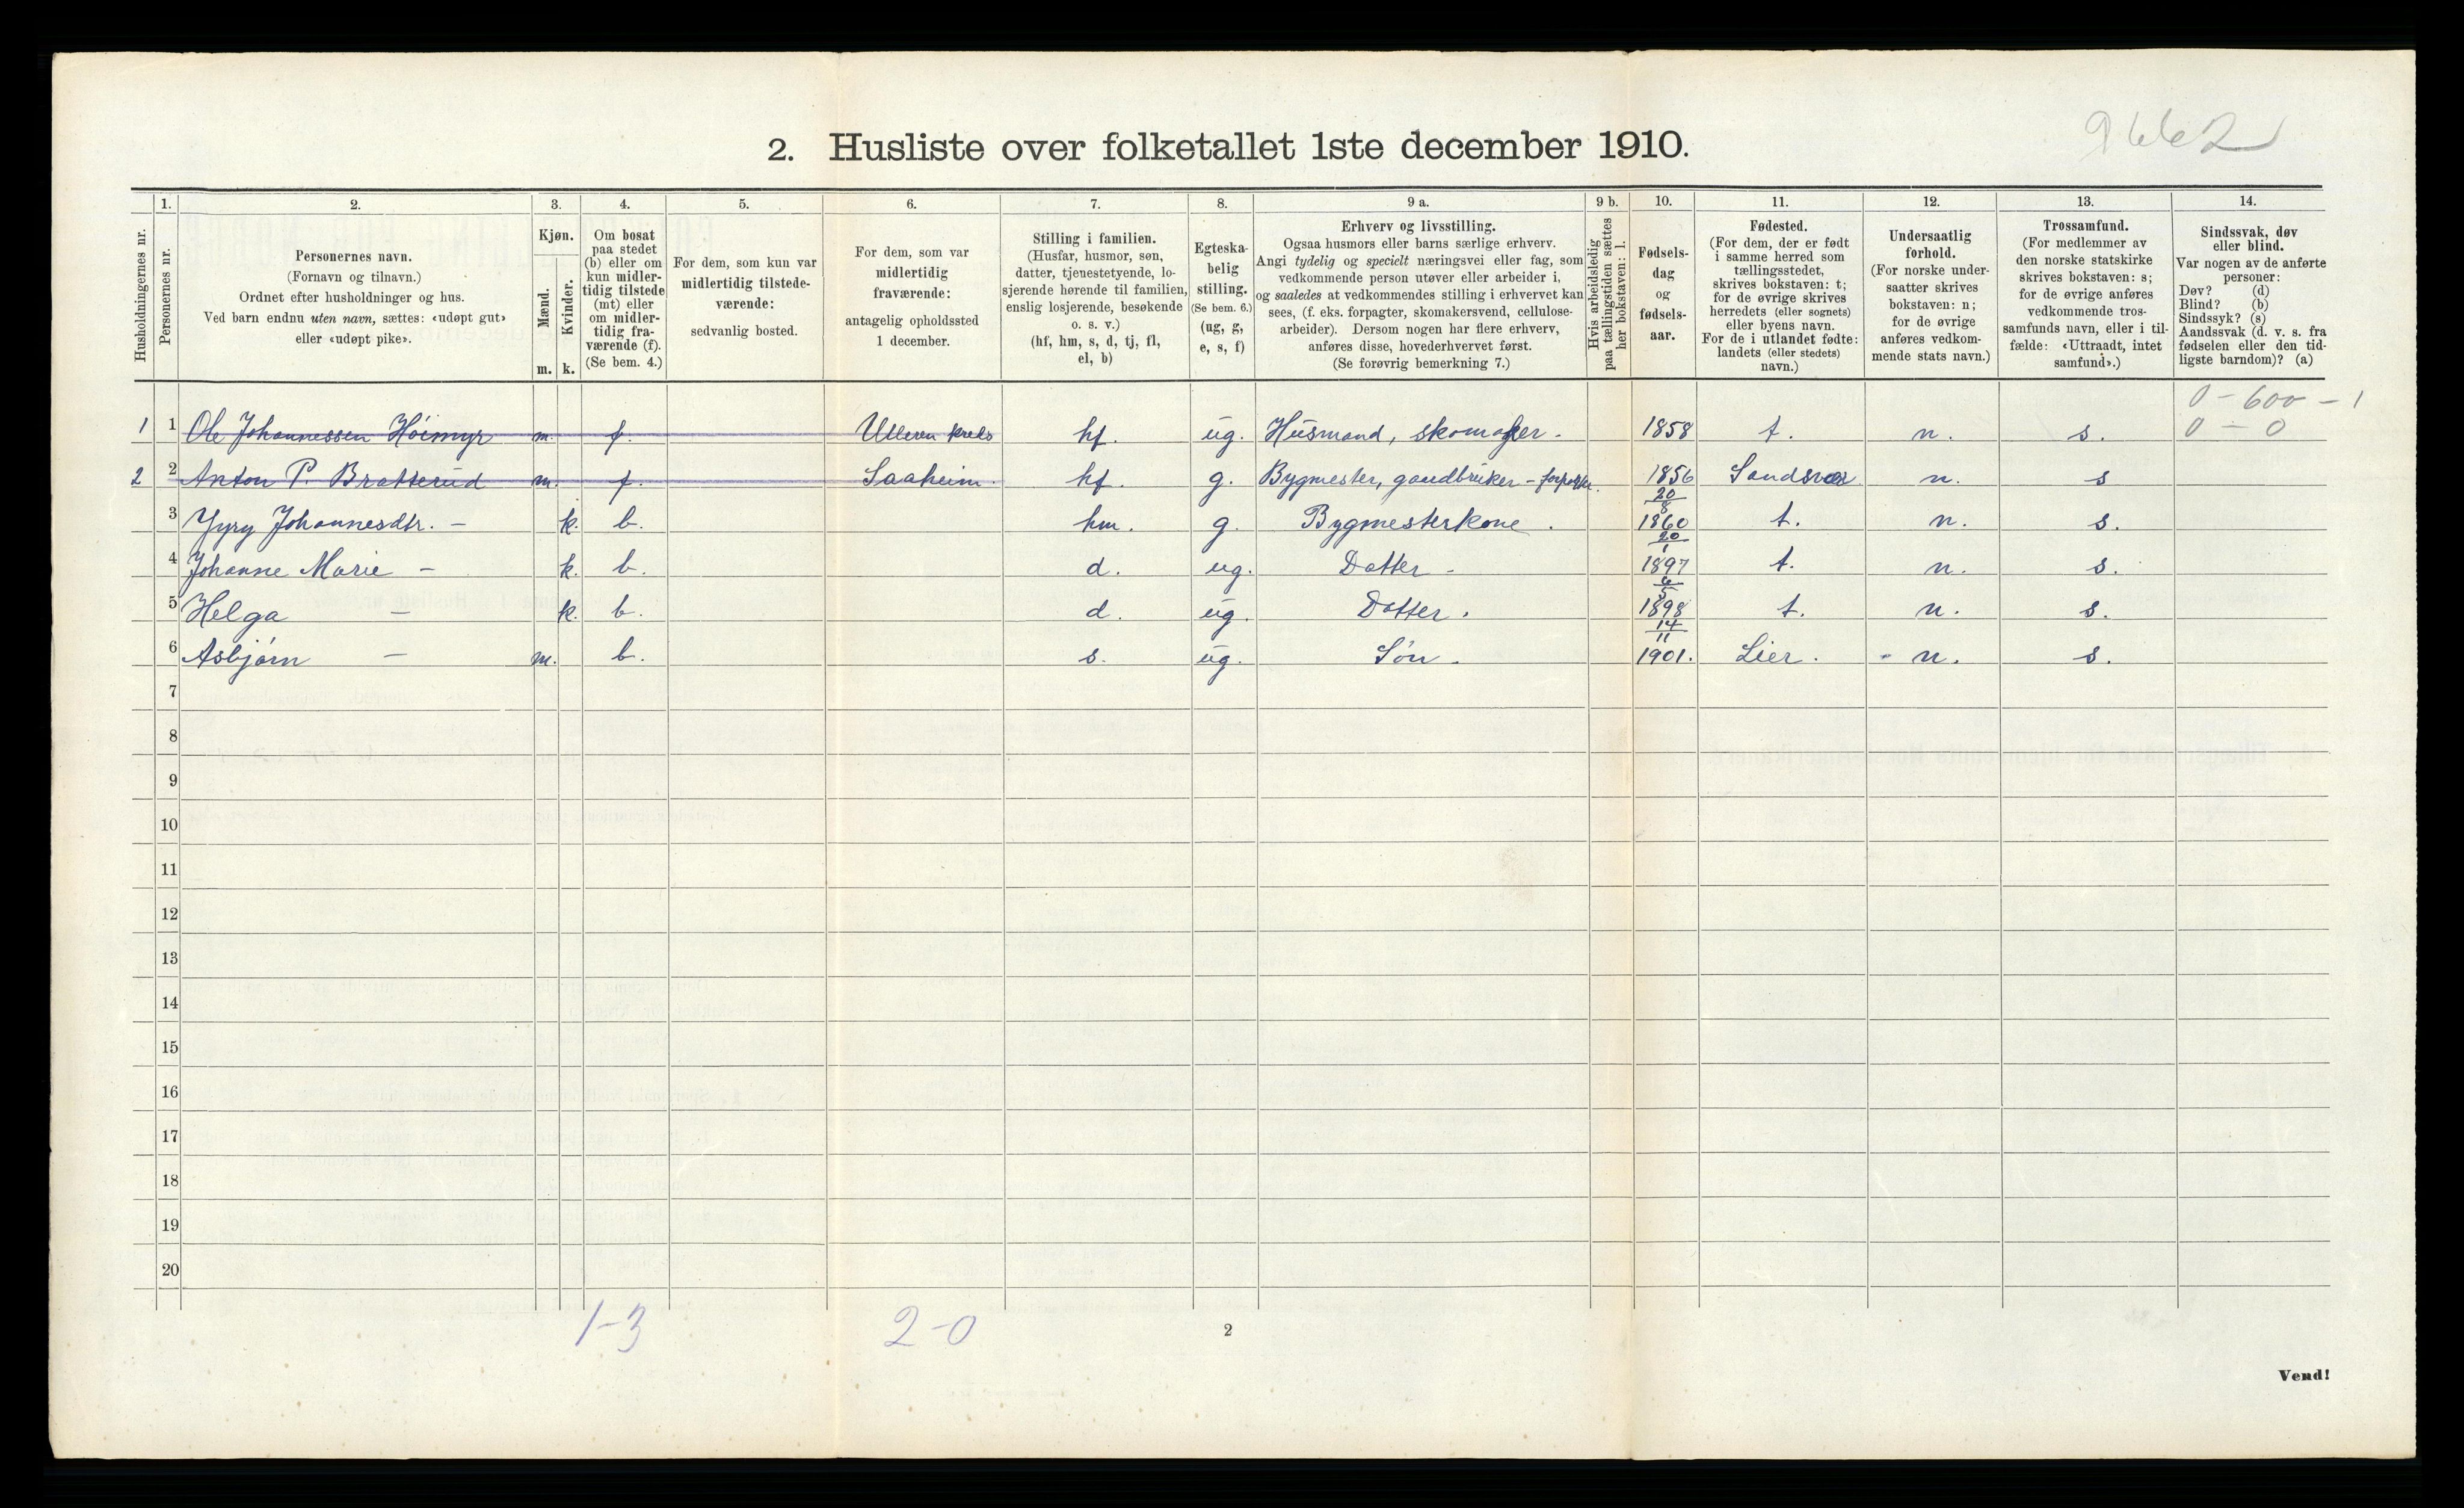 9662
2. Husliste over folketallet 1ste december 1910.
Husholdningernes nr.
1.
Personernes nr.
2.
Personernes navn.
(Fornavn og tilnavn.)
Ordnet efter husholdninger og hus.
Ved barn endnu uten navn, sættes: «udøpt gut»
eller «udøpt pike».
3.
Kjøn.
Mænd.
Kvinder.
m. k.
4.
Om bosat
paa stedet
(b) eller om
kun midler-
tidig tilstede
(mt) eller
om midler-
tidig fra-
værende (f).
(Se bem. 4.)
5.
For dem, som kun var
midlertidig tilstede-
værende:
sedvanlig bosted.
6.
For dem, som var
midlertidig
fraværende:
antagelig opholdssted
1 december.
7.
Stilling i familien.
(Husfar, husmor, søn,
datter, tjenestetyende, lo-
sjerende hørende til familien,
enslig losjerende, besøkende
o. s. v.)
(hf, hm, s, d, tj, fl,
el, b)
8.
Egteska-
belig
stilling.
(Se bem. 6.)
(ug, g,
e, s, f)
9 a.
Erhverv og livsstilling.
Ogsaa husmors eller barns særlige erhverv.
Angi tydelig og specielt næringsvei eller fag, som
vedkommende person utøver eller arbeider i,
og saaledes at vedkommendes stilling i erhvervet kan
sees, (f. eks. forpagter, skomakersvend, cellulose-
arbeider). Dersom nogen har flere erhverv,
anføres disse, hovederhvervet først.
(Se forøvrig bemerkning 7.)
9 b.
Hvis arbeidsledig
paa tællingstiden sættes
her bokstaven: l.
10.
Fødsels-
dag
og
fødsels-
aar.
11.
Fødested.
(For dem, der er født
i samme herred som
tællingsstedet,
skrives bokstaven: t;
for de øvrige skrives
herredets (eller sognets)
eller byens navn.
For de i utlandet fødte:
landets (eller stedets)
navn.)
12.
Undersaatlig
forhold.
(For norske under-
saatter skrives
bokstaven: n;
for de øvrige
anføres vedkom-
mende stats navn.)
13.
Trossamfund.
(For medlemmer av
den norske statskirke
skrives bokstaven: s;
for de øvrige anføres
vedkommende tros-
samfunds navn, eller i til-
fælde: «Uttraadt, intet
samfund».)
14.
Sindssvak, døv
eller blind.
Var nogen av de anførte
personer:
Døv? (d)
Blind? (b)
Sindssyk? (s)
Aandssvak (d. v. s. fra
fødselen eller den tid-
ligste barndom)? (a)
0 - 600 - 1
1 1 Ole Johannessen Høimyr m. f. Ulleren kreds hf. ug. Husmand, skomaker. 1858 t. n. s. 0 - 0
2 2 Anton P. Bratterud m. f. Saaheim. hf. g. Bygmester, gaudbruker - 1856 Sandsvær n. s
3 Jyry Johannesdtr. - k. b. hm. g. Bygmesterkone. 20/8 1860 t. n. s.
4 Johanne Marie - k. b. d. ug. Datter - 20/1 1897 t. n. s.
5 Helga - k. b. d. ug. Datter. 1898 t. n. s.
6 Asbjørn - m. b. s. ug. Søn. 14/11 1901. Lier. - n. s.
7
8
9
10
11
12
13
14
15
16
17
18
19
20
1-3 2-0
2
Vend!